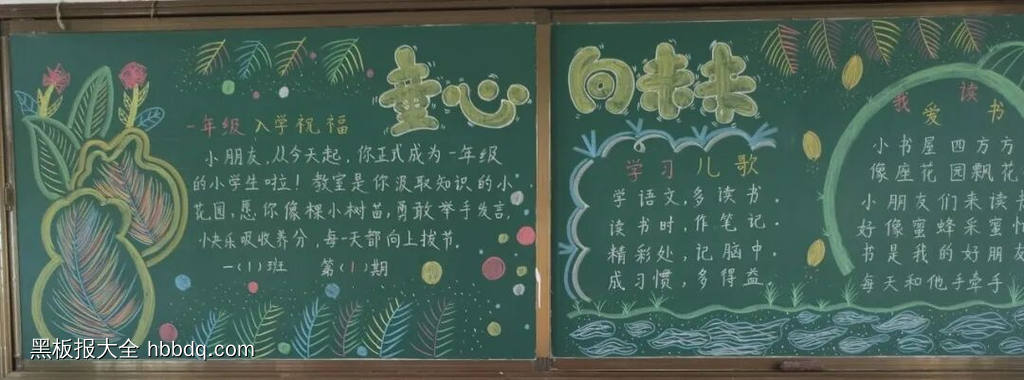 童心
向未来
一年级入学祝福
小朋友,从今天起,你正式成为一年级
的小学生啦!教室是你汲取知识的小
花园,愿你像棵小树苗,勇敢举手发言,
快乐吸收养分,每一天都向上拔节。
一(1)班 第(1)期
学习儿歌
学语文,多读书。
读书时,作笔记。
精彩处,记脑中。
成习惯,多得益
我爱读书
小书屋四方方
像座花园飘花
小朋友们来读书
好像蜜蜂采蜜忙
书是我的好朋友
每天和他手牵手
黑板报大全 hbbdq.com